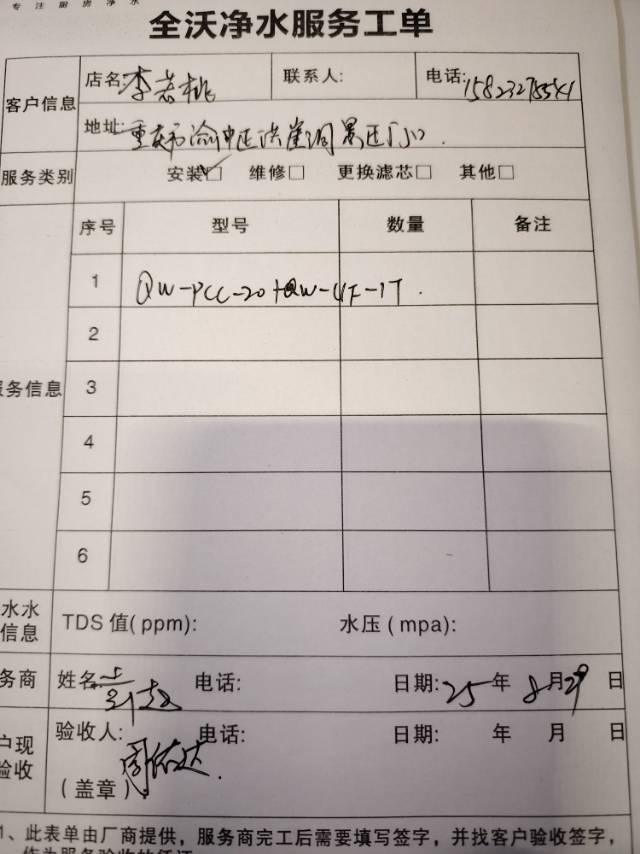 专注厨房净水
全沃净水服务工单
客户信息 店名:李老桃 联系人: 电话:
地址:重庆市渝中区洪崖洞景区门口.
服务类别 安装☑ 维修□ 更换滤芯□ 其他□
序号 型号 数量 备注
1 QW-PCC-20+QW-UF-1T.
2
务信息 3
4
5
6
水水
信息 TDS 值(ppm): 水压(mpa):
务商 姓名 电话: 日期:25年8月29日
户现 验收人: 电话: 日期: 年 月 日
验收 (盖章)
1、此表单由厂商提供，服务商完工后需要填写签字，并找客户验收签字，